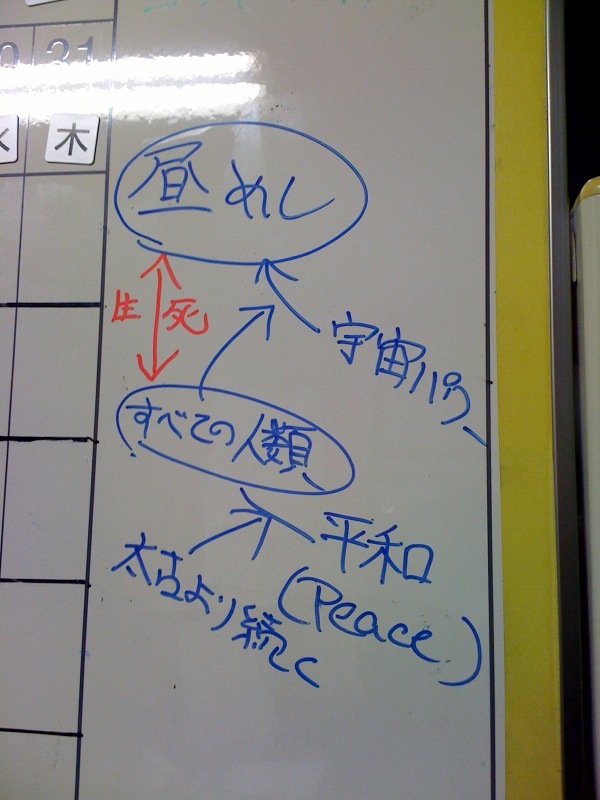 31
木
昼めし
生 死
宇宙パワー
すべての人類
平和
(Peace)
太古より続く